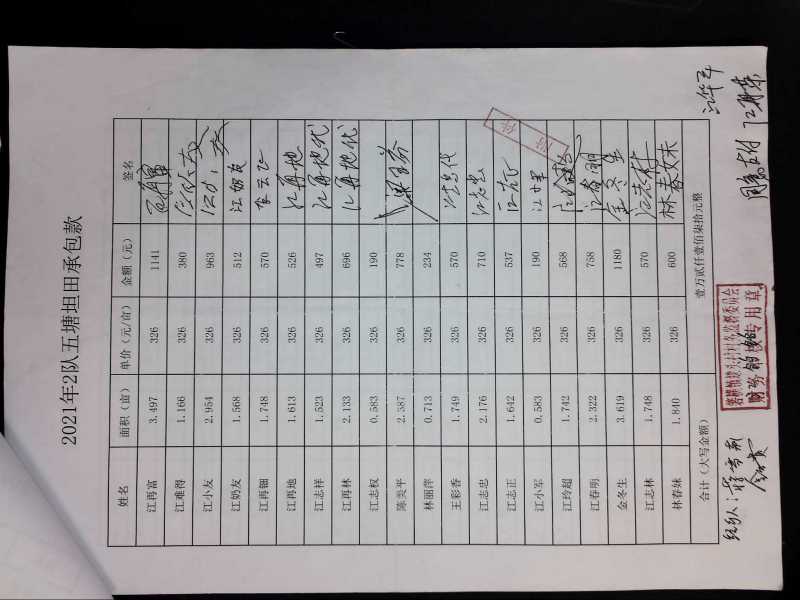 2021年2队五塘坦田承包款
姓名 面积（亩） 单价（元/亩） 金额（元） 签名
江再富 3.497 326 1141
江难得 1.166 326 380
江小友 2.954 326 963
江奶友 1.568 326 512 江奶友
江再钿 1.748 326 570
江再地 1.613 326 526 江再地
江志样 1.523 326 497 江再地代
江再林 2.133 326 696 江再地代
江志权 0.583 326 190
陈美平 2.387 326 778
林丽萍 0.713 326 234
王彩香 1.749 326 570
江志忠 2.176 326 710 江志忠
江志正 1.642 326 537
江小军 0.583 326 190 江小军
江玲超 1.742 326 568
江春明 2.322 326 758 江春明
金冬生 3.619 326 1180 金冬生
江志林 1.748 326 570 江志林
林春妹 1.840 326 600 林春妹
合计（大写金额） 壹万贰仟壹佰柒拾元整
经办人：
财务 专用章